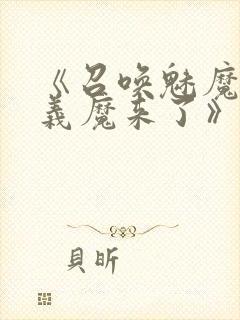 《召唤魅魔
義魔来了》
貝昕